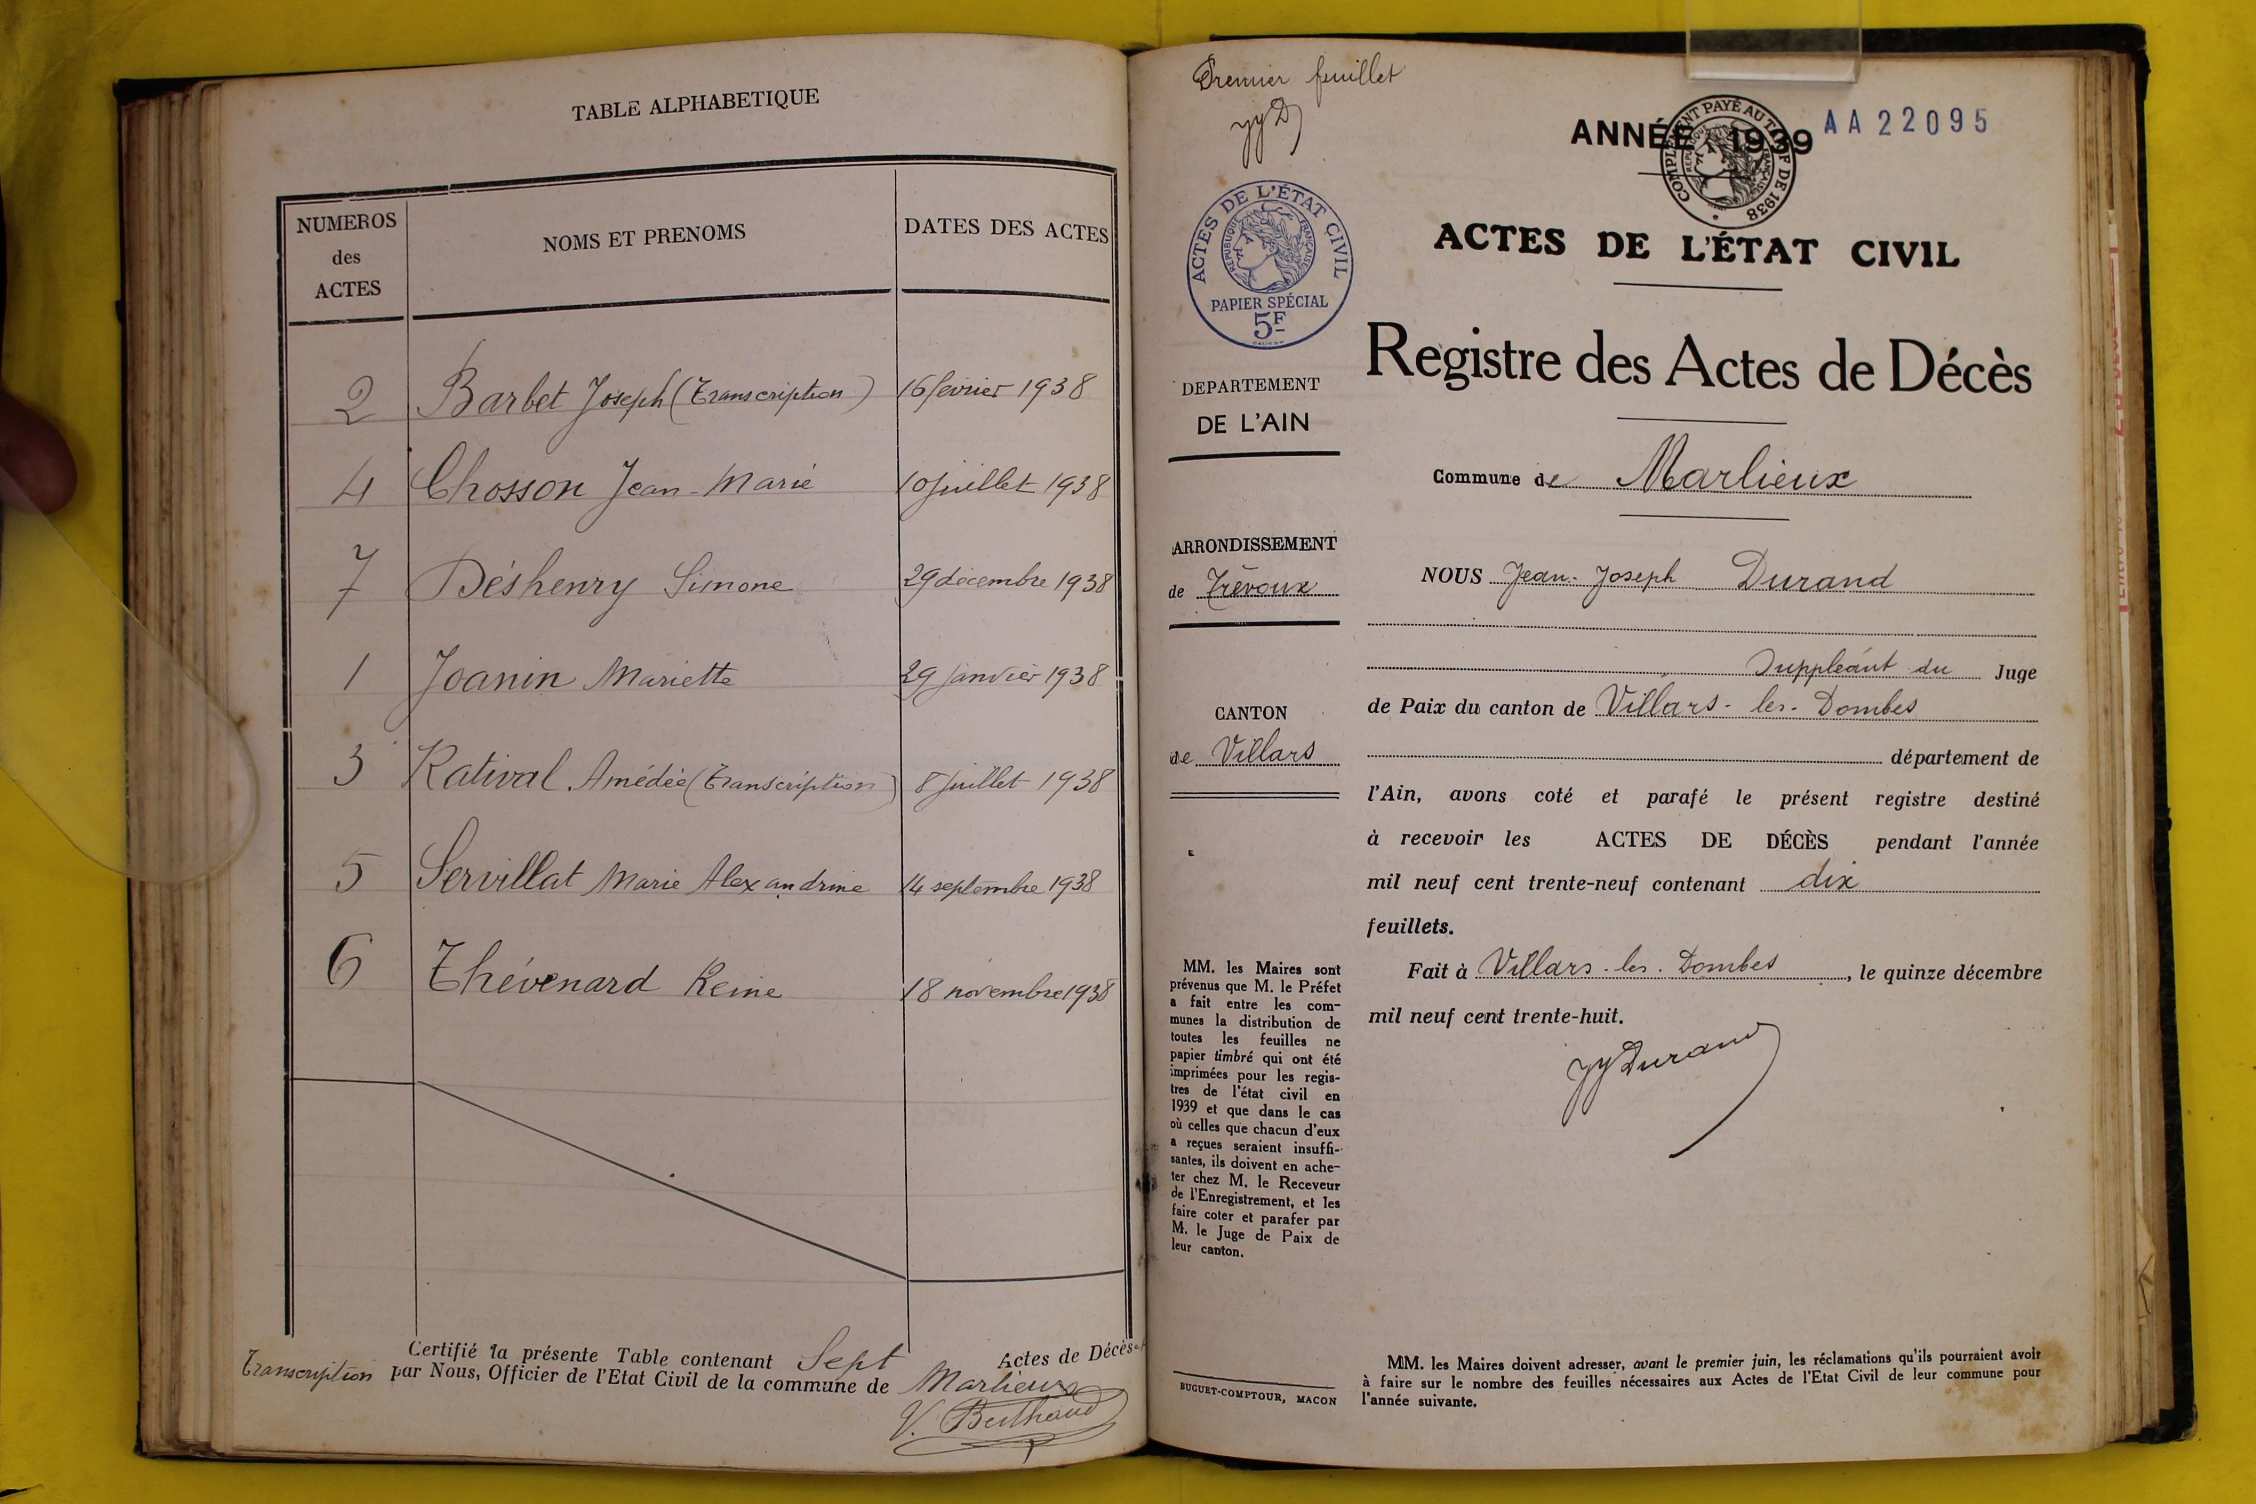 TABLE ALPHABETIQUE
NUMEROS
des
ACTES
NOMS ET PRENOMS
DATES DES ACTES
2 Barbet Joseph (Transcription) 16 février 1938
4 Chosson Jean-Marie 10 juillet 1938
7 Déshenry Simone 29 décembre 1938
1 Joanin Mariette 29 janvier 1938
3 Ratival Amédée (Transcription) 8 juillet 1938
5 Servillat Marie Alexandrine 14 septembre 1938
6 Thévenard Reine 18 novembre 1938
Certifié la présente Table contenant Sept Actes de Décès
Transcription par Nous, Officier de l'Etat Civil de la commune de Marlieux
V. Berthaud
Premier feuillet
JJD
ANNÉE 1939
AA22095
COMPLÉMENT PAYÉ AU TARIF DE 1938
RÉPUBLIQUE FRANÇAISE
ACTES DE L'ÉTAT CIVIL
RÉPUBLIQUE FRANÇAISE
PAPIER SPÉCIAL
5F
DEPARTEMENT
DE L'AIN
ARRONDISSEMENT
de Trévoux
CANTON
de Villars
MM. les Maires sont
prévenus que M. le Préfet
a fait entre les com-
munes la distribution de
toutes les feuilles ne
papier timbré qui ont été
imprimées pour les regis-
tres de l'état civil en
1939 et que dans le cas
où celles que chacun d'eux
a reçues seraient insuffi-
santes, ils doivent en ache-
ter chez M. le Receveur
de l'Enregistrement, et les
faire coter et parafer par
M. le Juge de Paix de
leur canton.
BUGUET-COMPTOUR, MACON
ACTES DE L'ÉTAT CIVIL
Registre des Actes de Décès
Commune de Marlieux
NOUS Jean-Joseph Durand
Suppléant du Juge
de Paix du canton de Villars-les-Dombes
département de
l'Ain, avons coté et parafé le présent registre destiné
à recevoir les ACTES DE DÉCÈS pendant l'année
mil neuf cent trente-neuf contenant dix
feuillets.
Fait à Villars-les-Dombes, le quinze décembre
mil neuf cent trente-huit.
JJDurand
MM. les Maires doivent adresser, avant le premier juin, les réclamations qu'ils pourraient avoir
à faire sur le nombre des feuilles nécessaires aux Actes de l'Etat Civil de leur commune pour
l'année suivante.